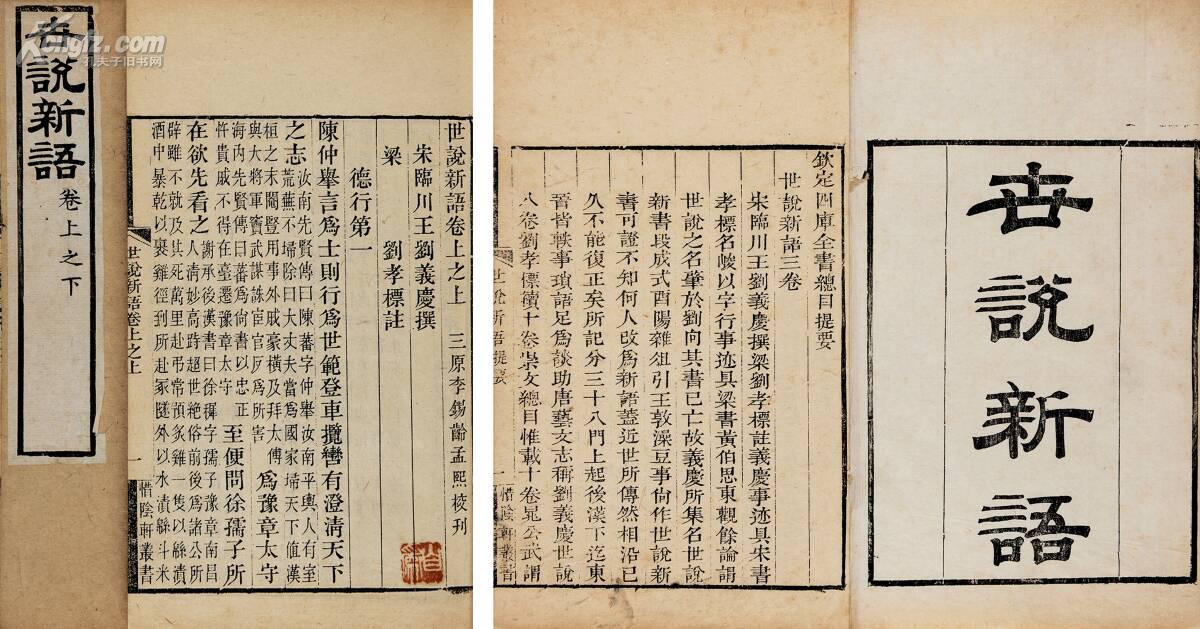 世說新語 卷上之下
kongfz.com
孔夫子旧书网
世說新語卷上之上 三原李錫齡孟熙校刊
宋臨川王劉義慶撰
梁 劉孝標註
德行第一
陳仲舉言為士則行為世範登車攬轡有澄清天下
之志
汝南先賢傳曰陳蕃字仲舉汝南平輿人有室
荒蕪不掃除曰大丈夫當為國家掃天下值漢
桓之末閹豎用事外戚豪橫及拜太傅
與大將軍竇武謀誅宦官反為所害
為豫章太守
海內先賢傳曰蕃為尚書以忠正
忤貴戚不得在臺遷豫章太守
至便問徐孺子所
在欲先看之
謝承後漢書曰徐穉字孺子豫章南昌
人清妙高跱超世絕俗前後為諸公所
辟雖不就及其死萬里赴弔常預炙雞一隻以緜漬
酒中暴乾以裹雞徑到所赴冢隧外以水漬緜斗米
世說新語卷上之上 一 惜陰軒叢書
欽定四庫全書總目提要
世說新語三卷
宋臨川王劉義慶撰梁劉孝標註義慶事迹具宋書
孝標名峻以字行事迹具梁書黃伯思東觀餘論謂
世說之名肇於劉向其書已亡故義慶所集名世說
新書段成式酉陽雜俎引王敦澡豆事尚作世說新
書可證不知何人改為新語蓋近世所傳然相沿已
久不能復正矣所記分三十八門上起後漢下迄東
晉皆軼事瑣語足為談助唐藝文志稱劉義慶世說
八卷劉孝標續十卷崇文總目惟載十卷晁公武謂
世說新語提要 一 惜陰軒叢書
世說新語